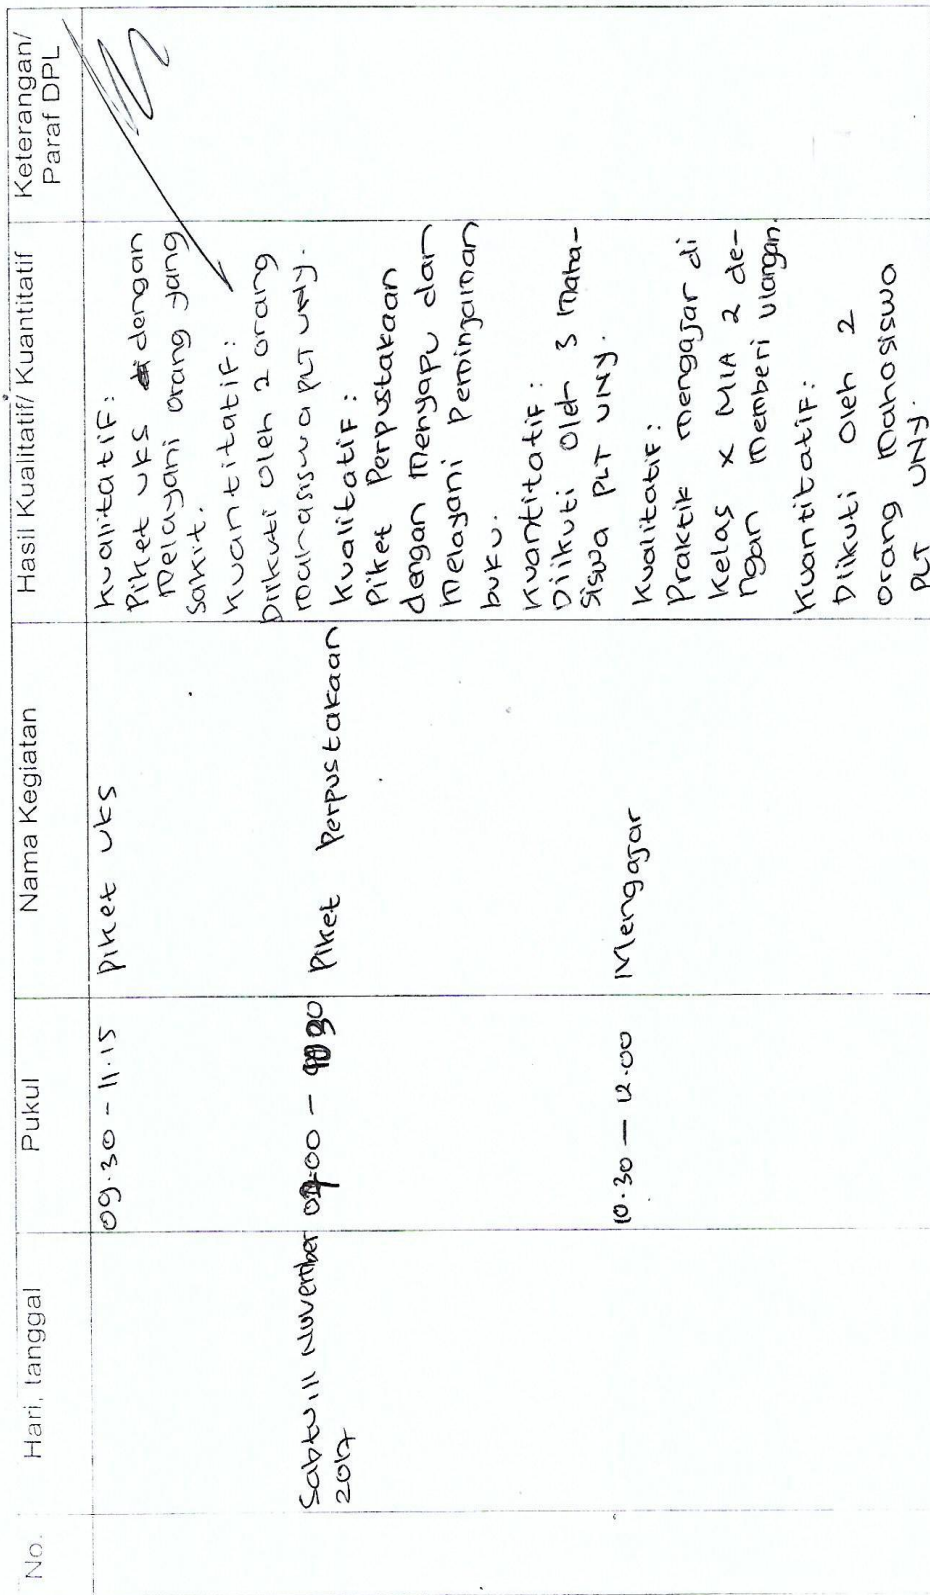 No.
Hari, tanggal
Pukul
Nama Kegiatan
Hasil Kualitatif/ Kuantitatif
Keterangan/
Paraf DPL
09.30 - 11.15
Piket UKS
Kualitatif:
Piket UKS dengan
melayani orang yang
sakit.
Kuantitatif:
Diikuti oleh 2 orang
mahasiswa PLT UNY.
Sabtu, 11 November
2017
Piket Perpustakaan
Kualitatif:
Piket Perpustakaan
dengan menyapu dan
melayani Peminjaman
buku.
Kuantitatif:
Diikuti Oleh 3 maha-
siswa PLT UNY.
10.30 - 12.00
Mengajar
Kualitatif:
Praktik mengajar di
Kelas X MIA 2 de-
ngan memberi ulangan.
Kuantitatif:
Diikuti Oleh 2
orang mahasiswa
PLT UNY.